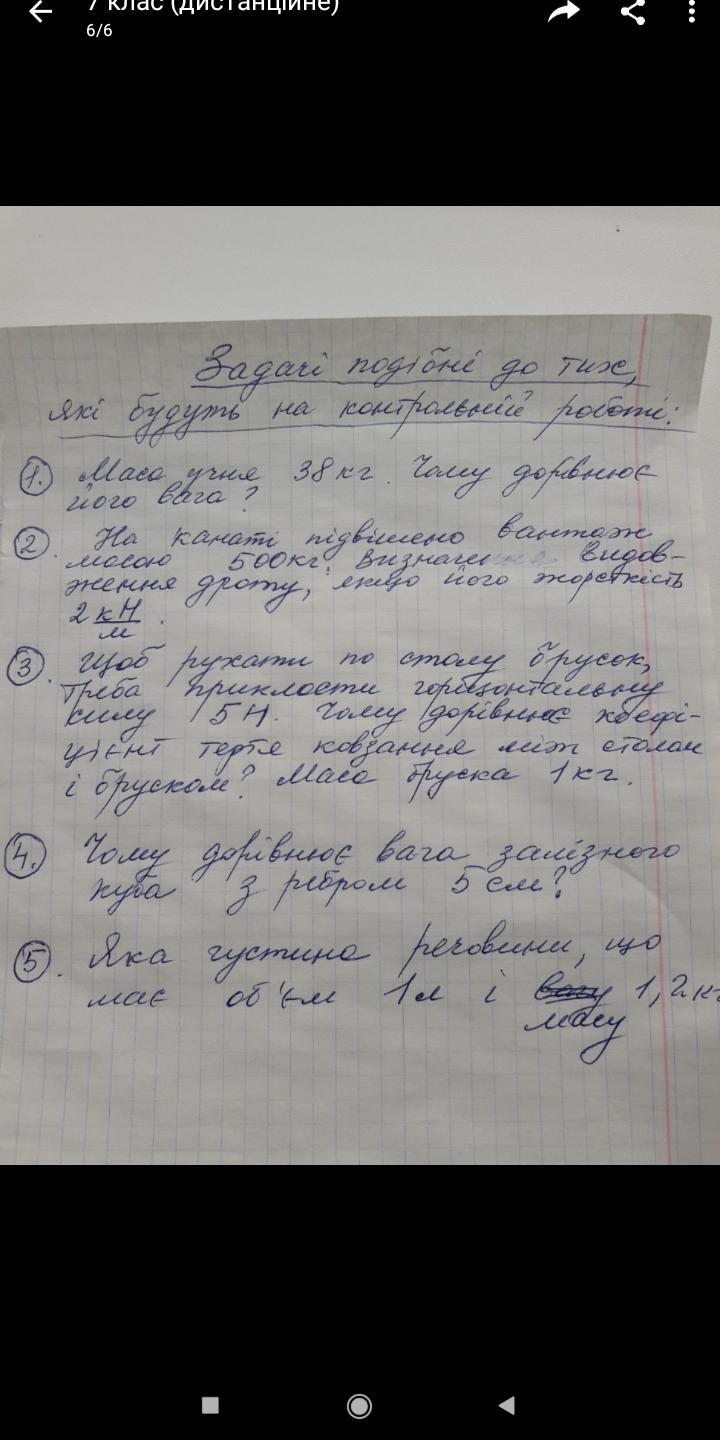 7 клас (дистанційне)
6/6
Задачі подібні до тих,
які будуть на контрольній роботі:
1. Маса учня 38 кг. Чому дорівнює
його вага?
2. На канаті підвішено вантаж
масою 500кг. Визначення видов-
ження дроту, якщо його жорсткість
2 кН/м.
3. Щоб рухати по столу брусок,
треба прикласти горизонтальну
силу 5Н. Чому дорівнює коефі-
цієнт тертя ковзання між столом
і бруском? Маса бруска 1кг.
4. Чому дорівнює вага залізного
куба з ребром 5 см?
5. Яка густина речовини, що
має об'єм 1л і вагу 1,2кг
масу